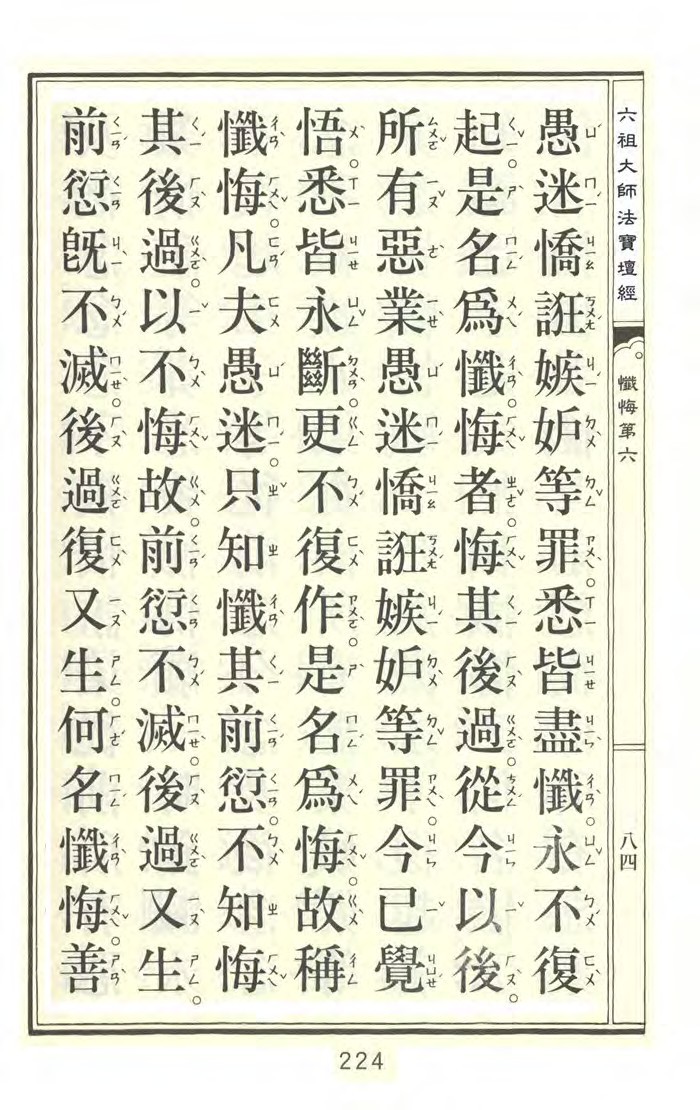 六祖大師法寶壇經
懺悔第六
八四
愚迷憍誑嫉妒等罪。悉皆盡懺。永不復
起。是名為懺。悔者。悔其後過。從今以後。
所有惡業。愚迷憍誑嫉妒等罪。今已覺
悟。悉皆永斷。更不復作。是名為悔。故稱
懺悔。凡夫愚迷。只知懺其前愆。不知悔
其後過。以不悔故。前愆不滅。後過又生。
前愆既不滅。後過復又生。何名懺悔。善
224